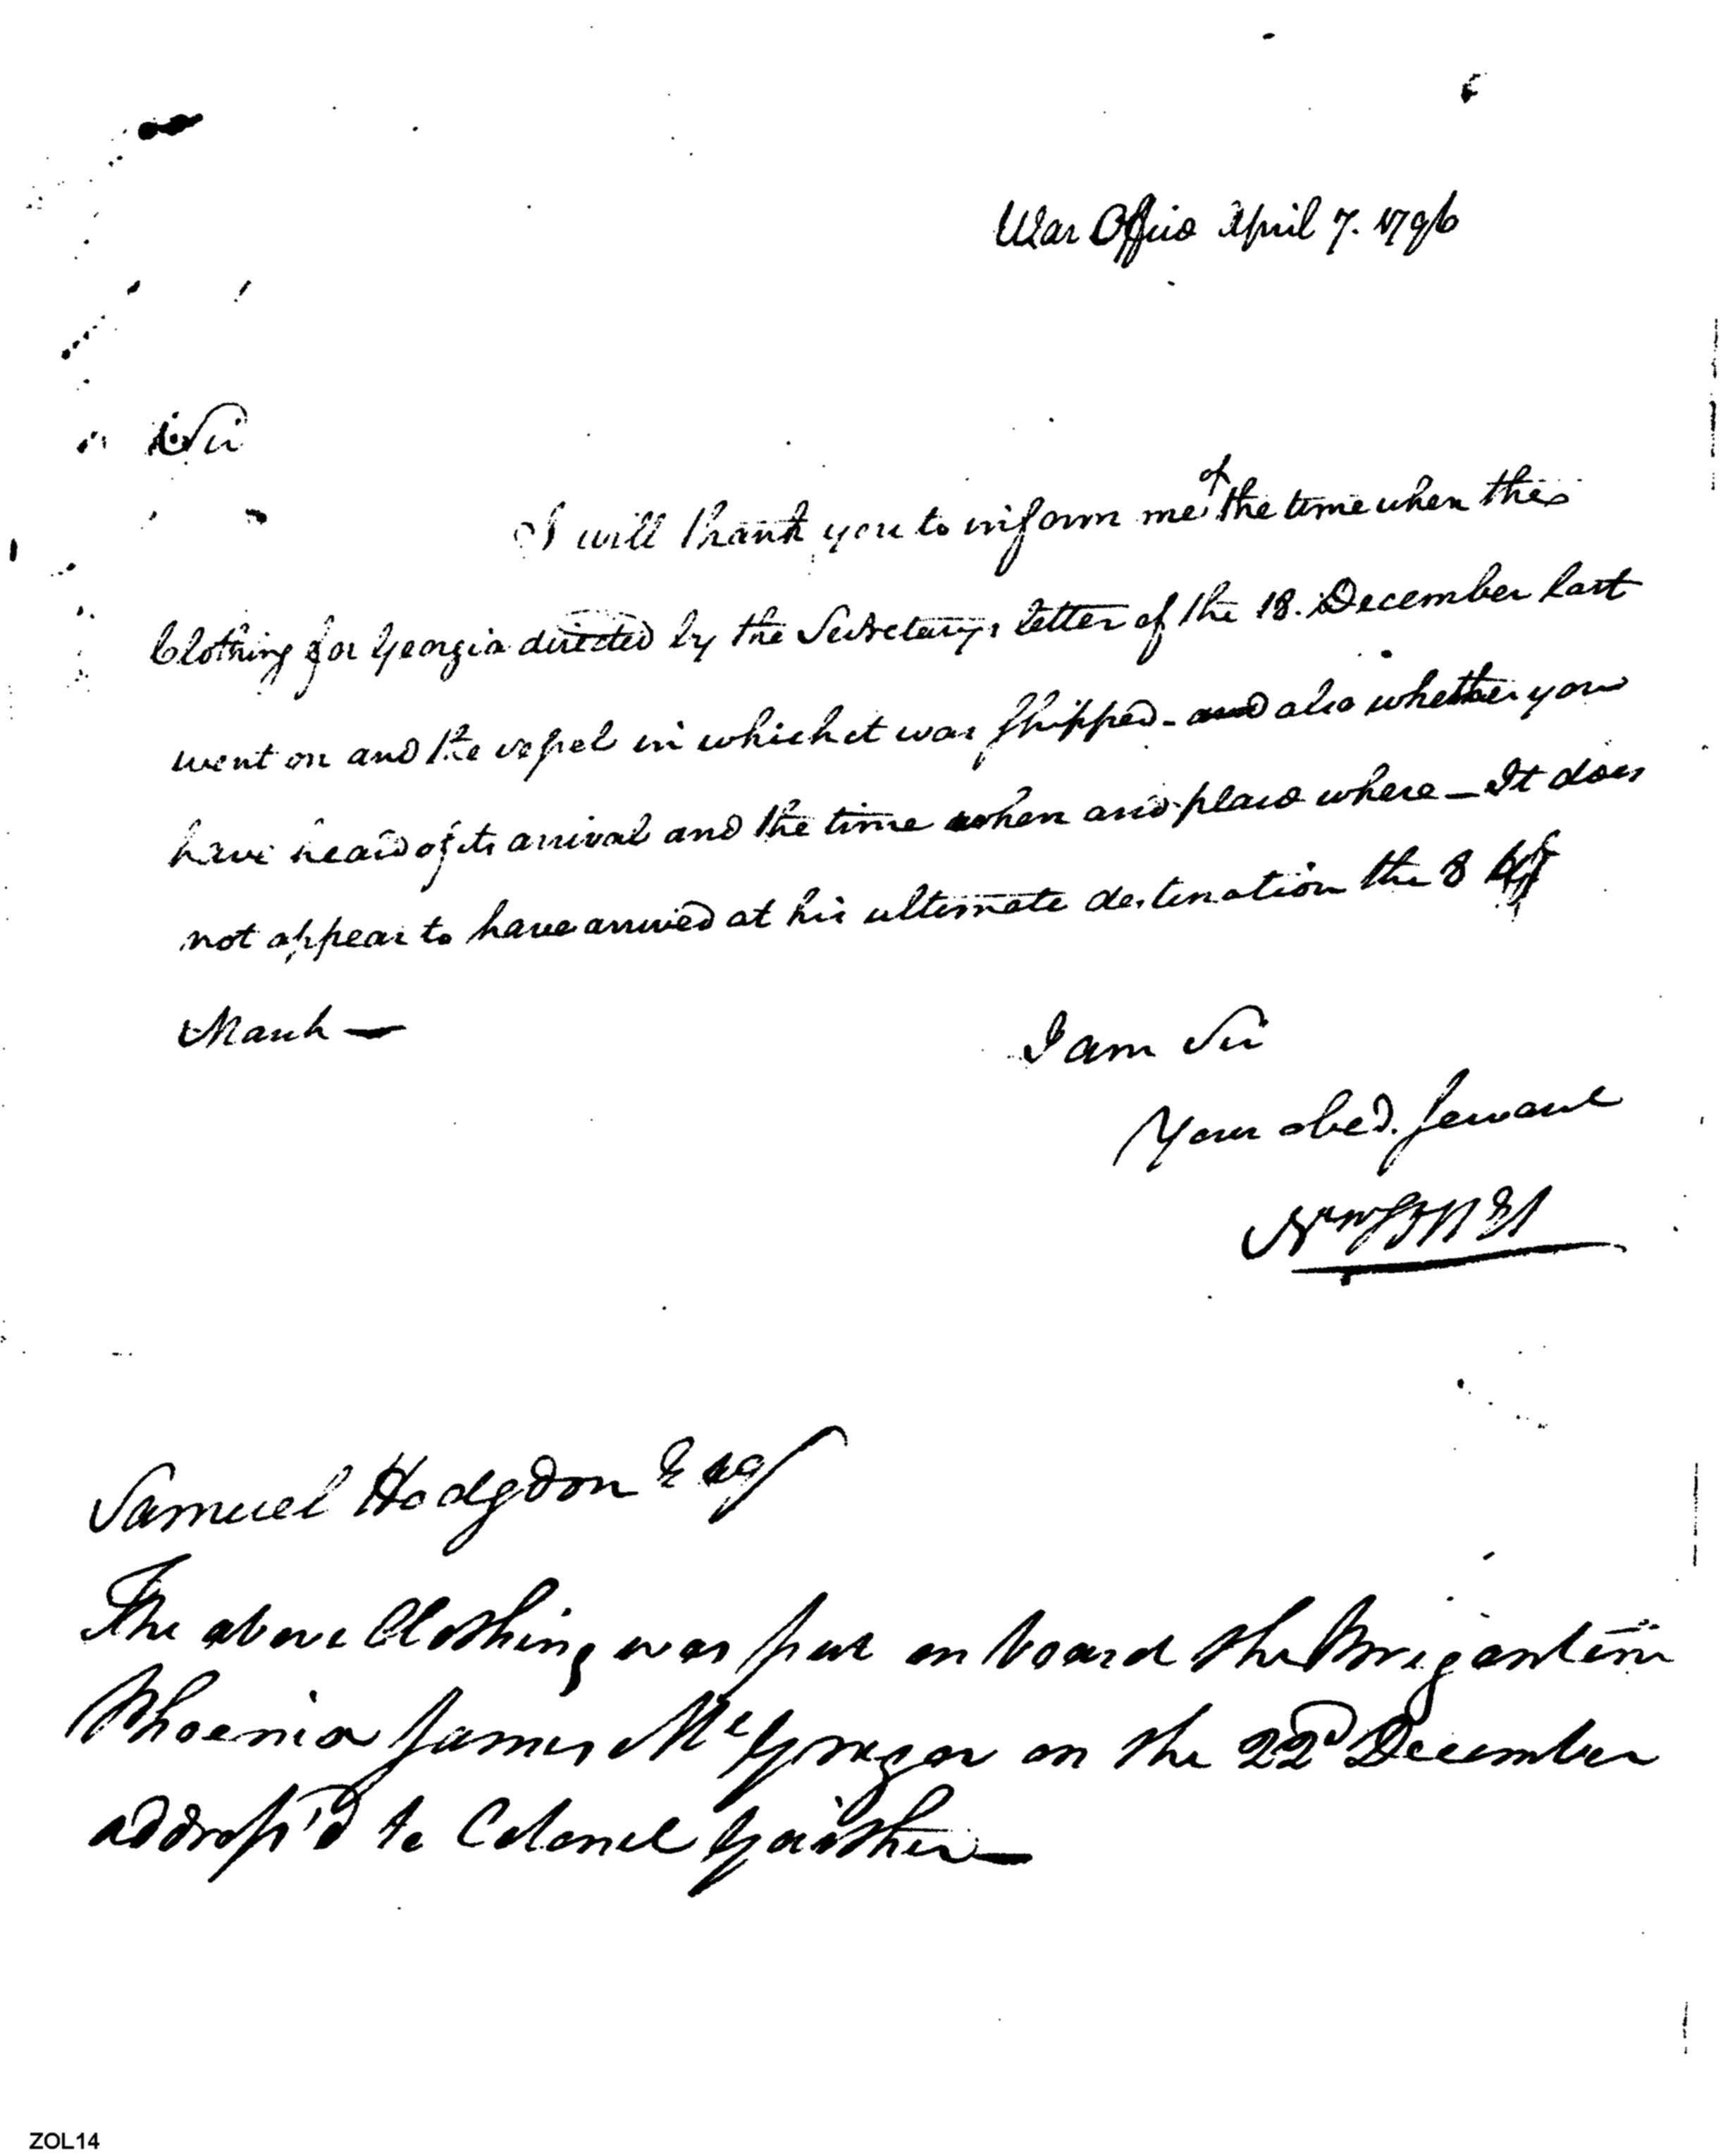 War Office April 7. 1796
Sir
I will thank you to inform me of the time when the
Clothing for Georgia directed by the Secretarys letter of the 18. December last
went on and the vessel in which it was shipped - and also whether you
have heard of its arrival and the time when and place where - It does
not appear to have arrived at his ultimate destination the 8 of
March -
I am Sir
Your obed. servant
Samuel Hodgdon Esq
The above Clothing was put on board the Brigantine
Phoenix James McGregor on the 22d December
address'd to Colonel Gaither -
ZOL14